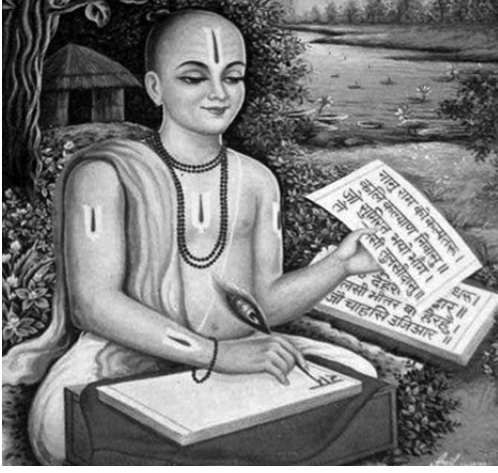 नामु राम को कल्पतरू।
कलि कल्याण निवासु॥
जो सुमिरत भयो भाँग
ते लसी तुलसीदासु॥
धरू।
देहरी द्वार॥
लसी भीतर बाहेरहुँ।
जौं चाहसि उजिआर॥